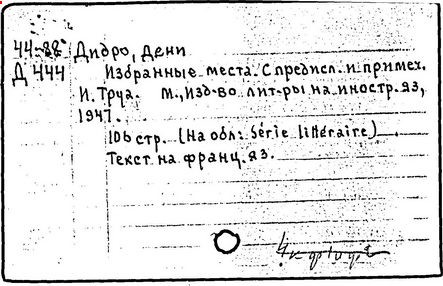 44-88 Дидро, Дени
Д 444 Избранные места. С предисл. и примеч.
И. Труа. М., Изд-во лит-ры на иностр. яз,
1947.
106 стр. (На обл: Série littéraire).
Текст на франц. яз.